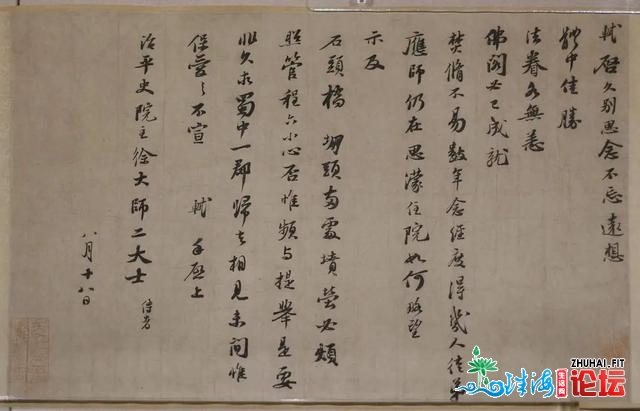 軾啓久別思念不忘遠想
體中佳勝
法眷各無恙
佛閣必已成就
焚脩不易數年念經度得幾人徒弟
應師仍在思濛住院如何略望
示及
石頭橋堋頭兩處墳塋必煩
照管程六小心否惟頻与提舉是要
非久求蜀中一郡歸去相見未間惟
保愛之不宣 軾 手啓上
治平史院主徐大師二大士 侍者
八月十八日
ZHUHAI.FIT
珠海
生活网
论坛